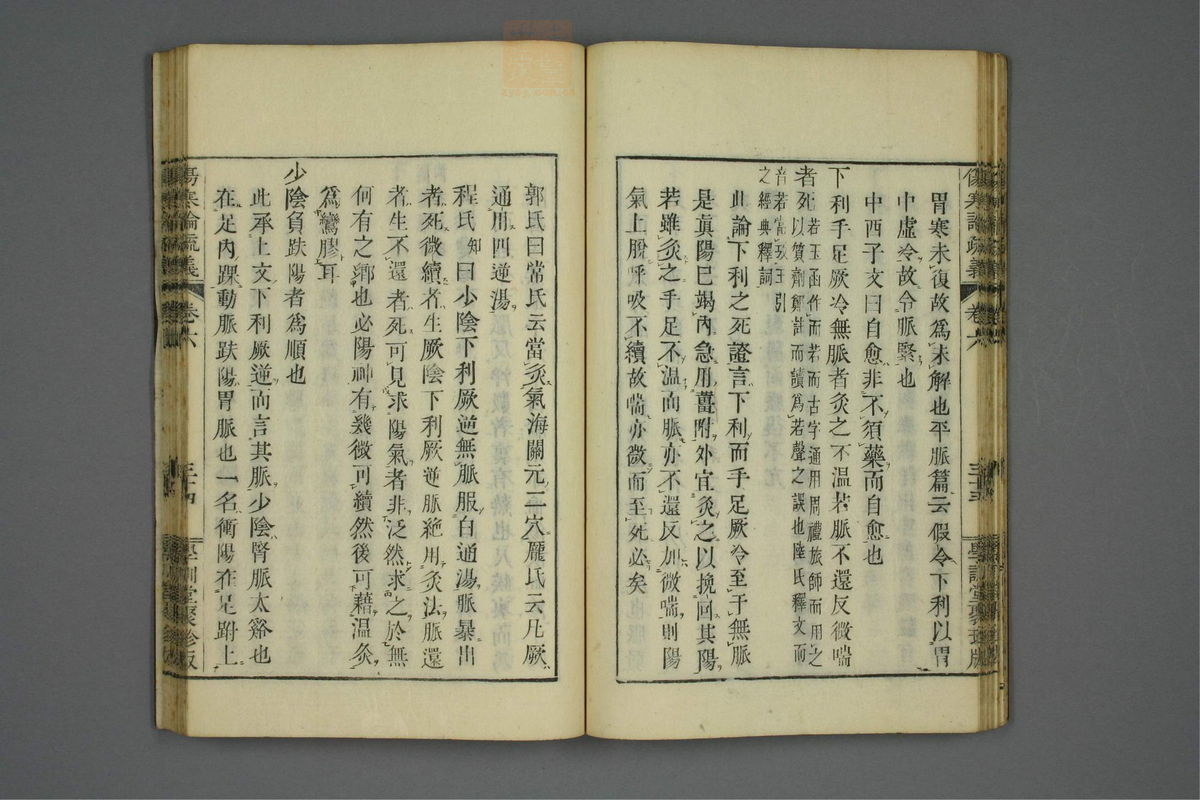 胃寒未復故爲未解也平脈篇云假令下利以胃
中虛冷故令脈緊也
中西子文曰自愈非不須藥而自愈也
下利手足厥冷無脈者灸之不溫若脈不還反微喘
者死若玉函作而若而古字通用周禮旅師而用之
以質劑鄭註而讀爲若聲之誤也陸氏釋文而
音若當攷王引
之經典釋詞
此論下利之死證言下利而手足厥冷至于無脈
是眞陽已竭內急用薑附外宜灸之以挽回其陽
若雖灸之手足不溫而脈亦不還反加微喘則陽
氣上脫呼吸不續故喘亦微而至死必矣
傷寒論疏義
卷六
三十四
學訓堂聚珍版
郭氏曰常氏云當灸氣海關元二穴龐氏云凡厥
通用四逆湯
程氏知曰少陰下利厥逆無脈服白通湯脈暴出
者死微續者生厥陰下利厥逆脈絕用灸法脈還
者生不還者死可見求陽氣者非泛然求之於無
何有之鄕也必陽神有幾微可續然後可藉溫灸
爲鸞膠耳
少陰負趺陽者爲順也
此承上文下利厥逆而言其脈少陰腎脈太谿也
在足內踝動脈趺陽胃脈也一名衝陽在足跗上
傷寒論疏義
卷六
三十四
學訓堂聚珍版